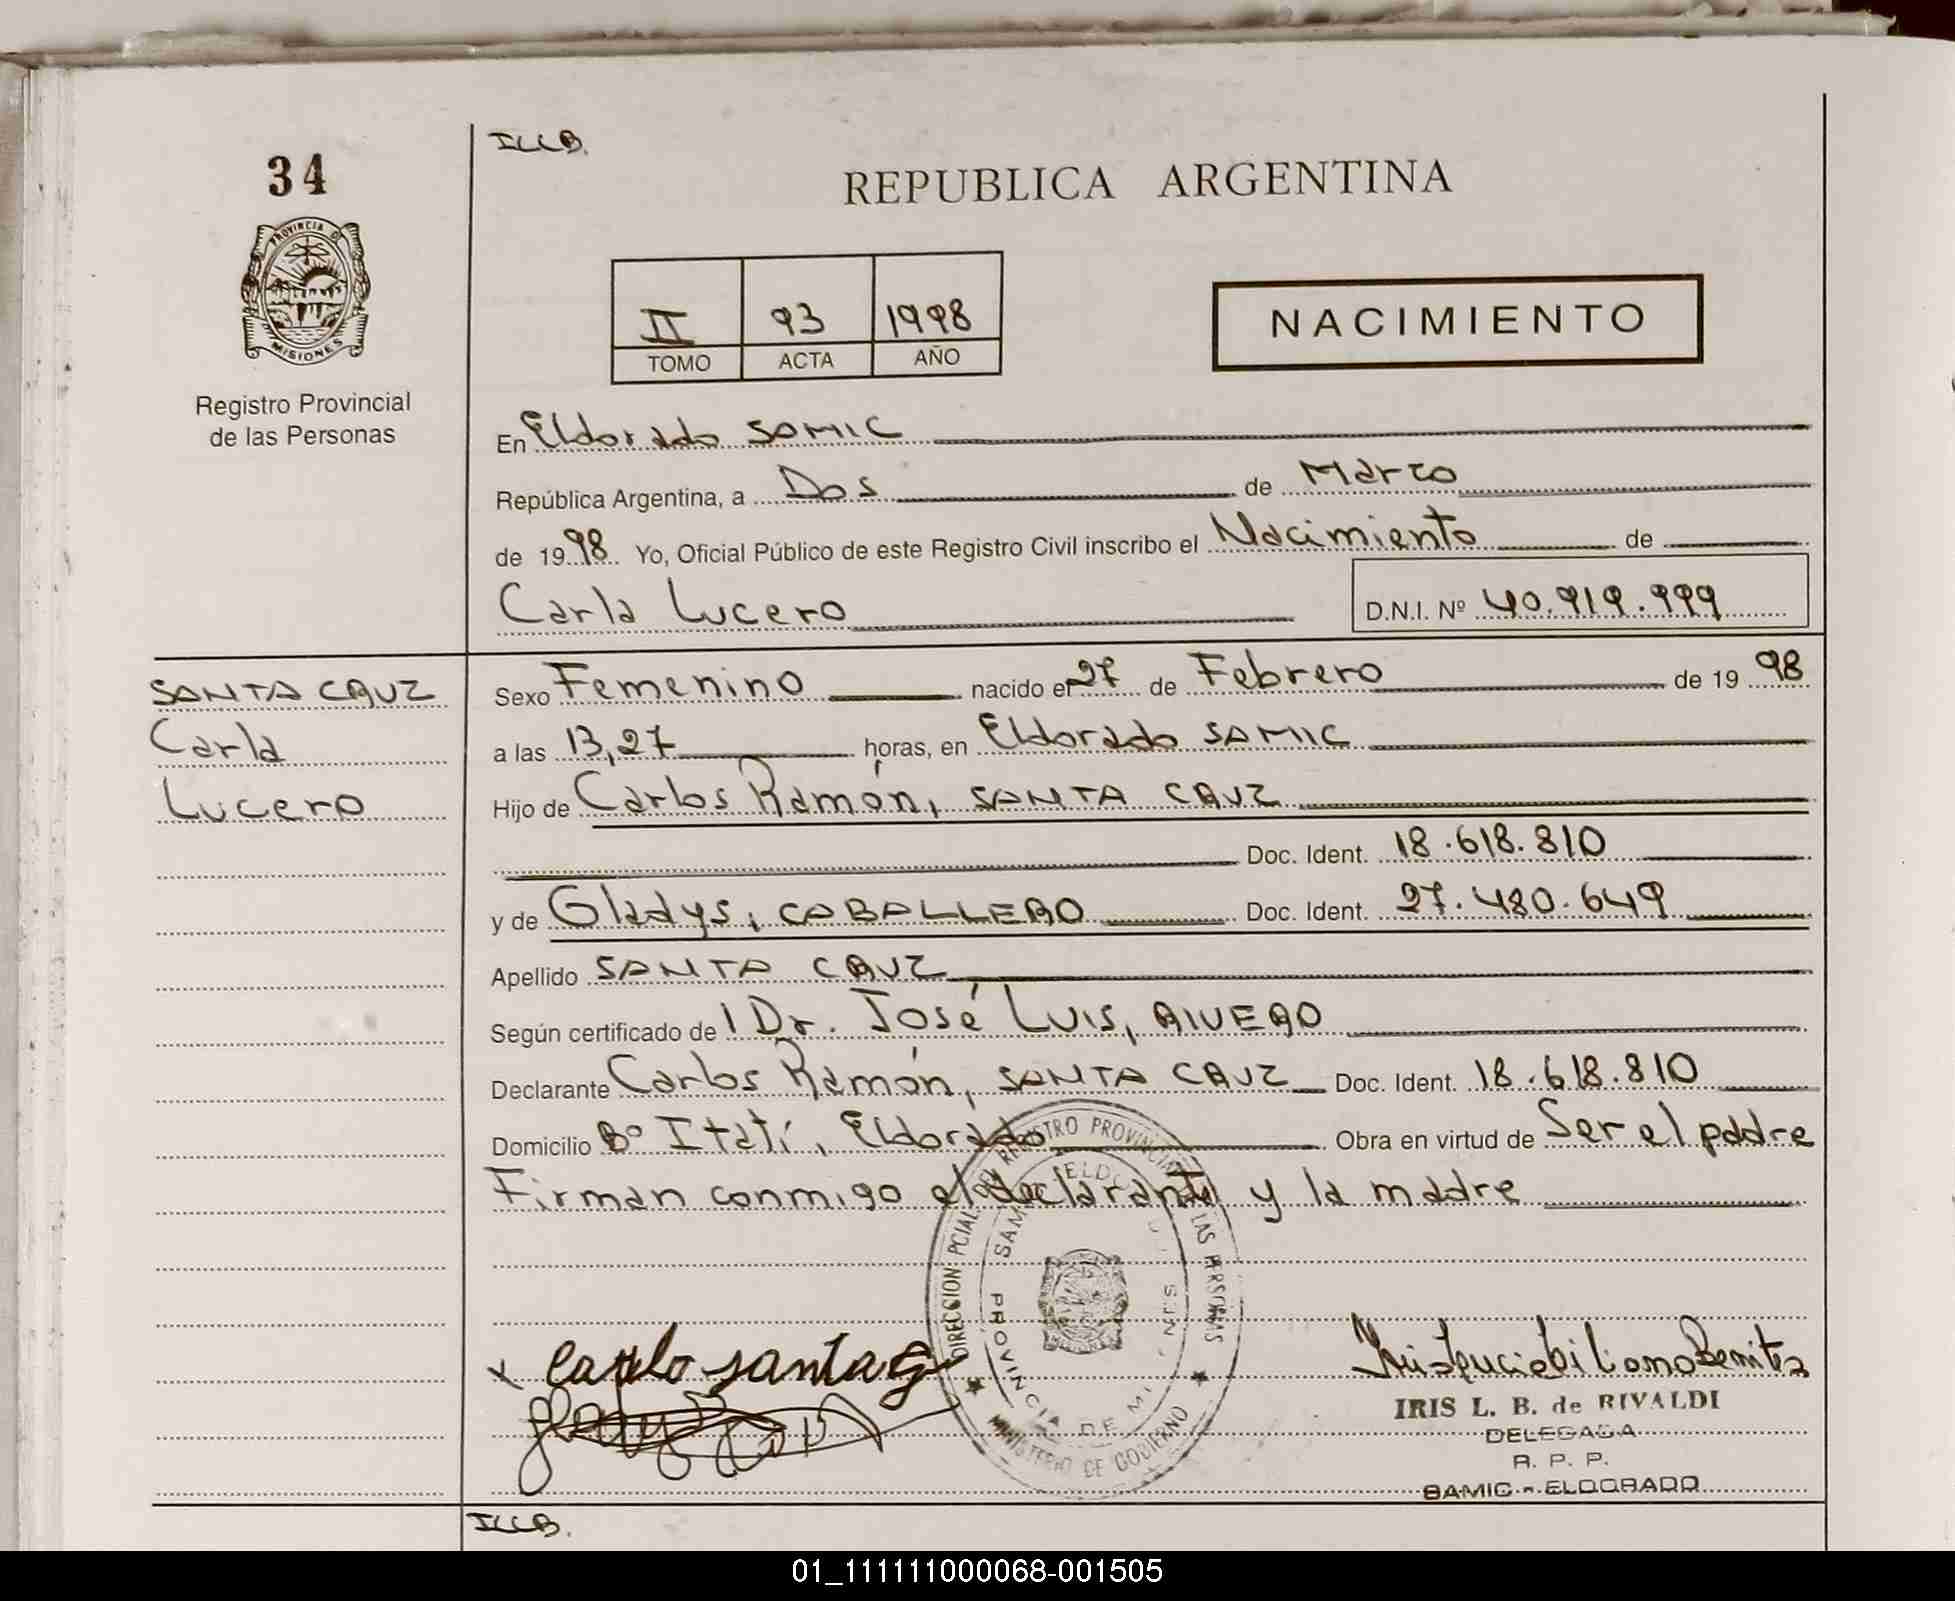 34
ILLB.
REPUBLICA ARGENTINA
PROVINCIA DE
MISIONES
Registro Provincial
de las Personas
II 93 1998
TOMO ACTA AÑO
NACIMIENTO
En Eldorado SAMIC
República Argentina, a Dos de Marzo
de 1998 Yo, Oficial Público de este Registro Civil inscribo el Nacimiento de
Carla Lucero D.N.I. Nº 40.919.999
SANTA CRUZ
Carla
Lucero
Sexo Femenino nacido el 27 de Febrero de 19 98
a las 13,27 horas, en Eldorado SAMIC
Hijo de Carlos Ramón, SANTA CRUZ
Doc. Ident. 18.618.810
y de Gladys, CABALLERO Doc. Ident. 27.480.649
Apellido SANTA CRUZ
Según certificado de l Dr. José Luis, RIVERO
Declarante Carlos Ramón, SANTA CRUZ Doc. Ident. 18.618.810
Domicilio Bº Itatí, Eldorado Obra en virtud de Ser el padre
Firman conmigo el declarante y la madre
DIRECCION PCIAL. DEL REGISTRO PROVINCIAL DE LAS PERSONAS
MINISTERIO DE GOBIERNO
PROVINCIA DE MISIONES
IRIS L. B. de RIVALDI
DELEGADA
R. P. P.
SAMIC - ELDORADO
ILLB.
01_111111000068-001505